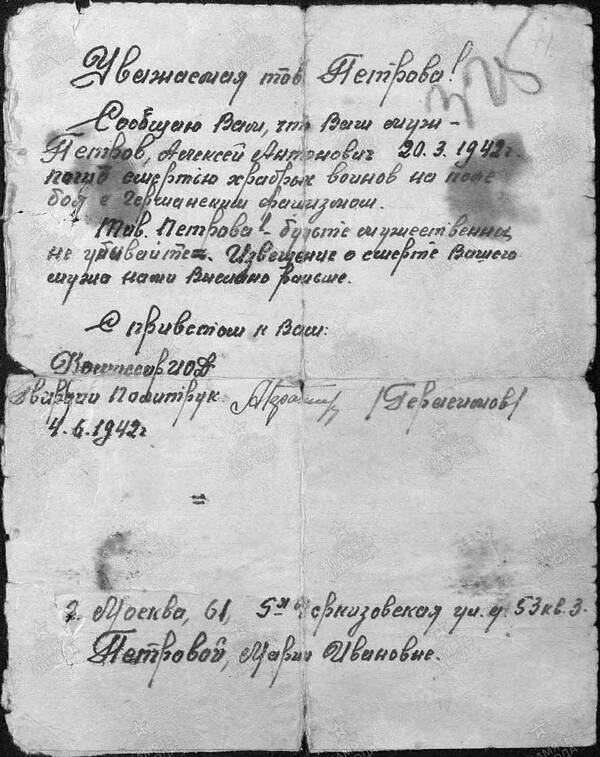 Уважаемая тов Петрова!
325
Сообщаю Вам, что Ваш муж –
Петров, Алексей Антонович 20.3.1942г.
погиб смертью храбрых воинов на поле
боя с Германским фашизмом.
Тов. Петрова! – будьте мужественны,
не убывайте=. Извещение о смерте Вашего
мужа нами выслано раньше.
С приветом к Вам:
Комиссар
Гвардии Политрук /Герасимов/
4.6.1942г
=
г. Москва, 61, 5я ул. д. 53 кв. 3.
Петровой, Марии Ивановне.